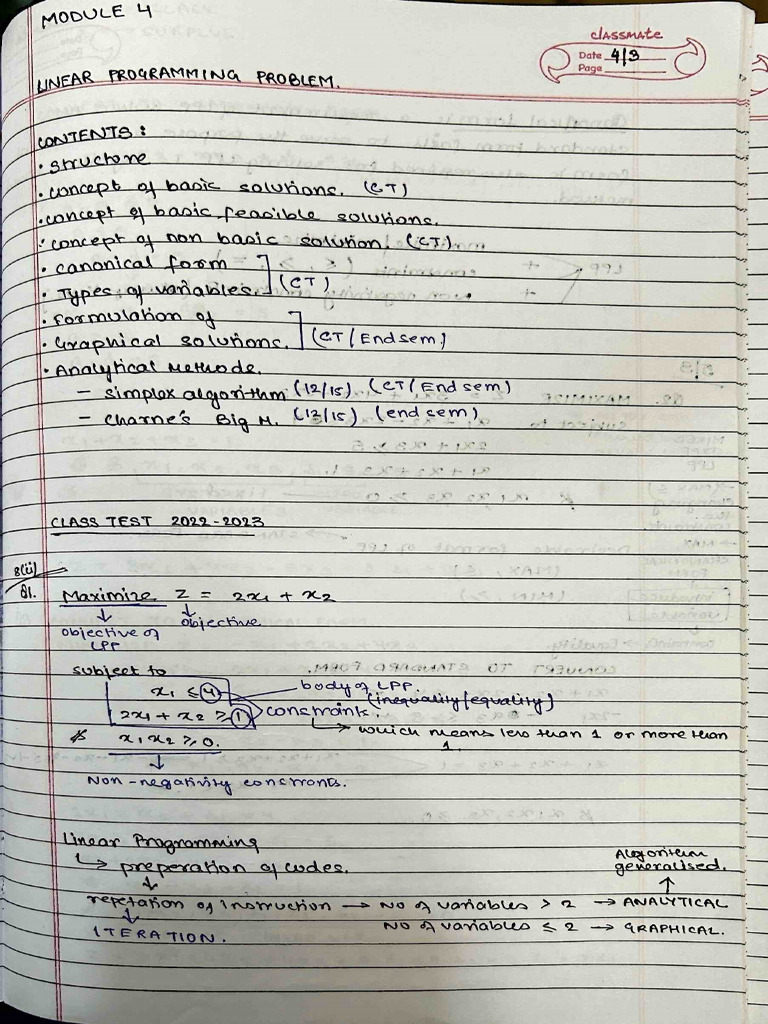 MODULE 4
classmate
Date 4/3
Page
LINEAR PROGRAMMING PROBLEM.
CONTENTS:
• structure
• concept of basic solutions. (CT)
• concept of basic feasible solutions.
• concept of non basic solution. (CT)
• canonical form
• Types of variables. ] (CT)
• formulation of
• Graphical solutions. ] (CT/Endsem)
• Analytical Methods.
– simplex algorithm (12/15) (CT/End sem)
– Charne's Big M. (12/15) (end sem)
CLASS TEST 2022-2023
8(ii)
Q1. Maximize Z = 2x1 + x2
↓ ↓
objective of objective
LPP
subject to
x1 ≤ 4 body of LPP.
2x1 + x2 ≥ 1 constraints. (inequality/equality)
& x1 x2 ≥ 0. ↳ which means less than 1 or more than
↓ 1.
Non-negativity constraints.
Linear Programming
↳ preperation of codes. Algorithm
↓ generalised.
↑
repetation of instruction → No of variables > 2 → ANALYTICAL
↓
ITERATION. No of variables ≤ 2 → GRAPHICAL.